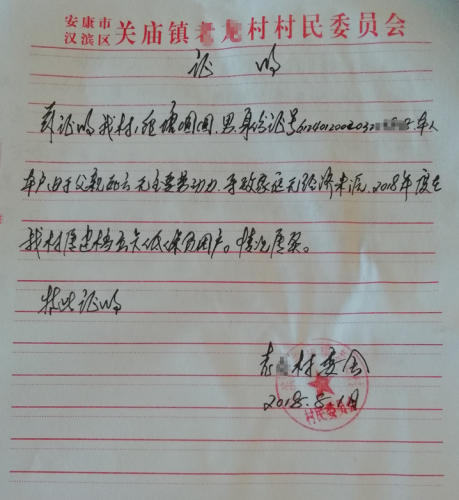 安康市
汉滨区 关庙镇老龙村村民委员会
证 明
兹证明我村,唐圆圆,男,身份证号612401200203 8.本人
本户由于父亲死亡无主要劳动力,导致家庭无经济来源,2018年度在
我村 建档立卡低保贫困户。情况属实。
特此证明
村委会
2018.8. 日
村民委员会